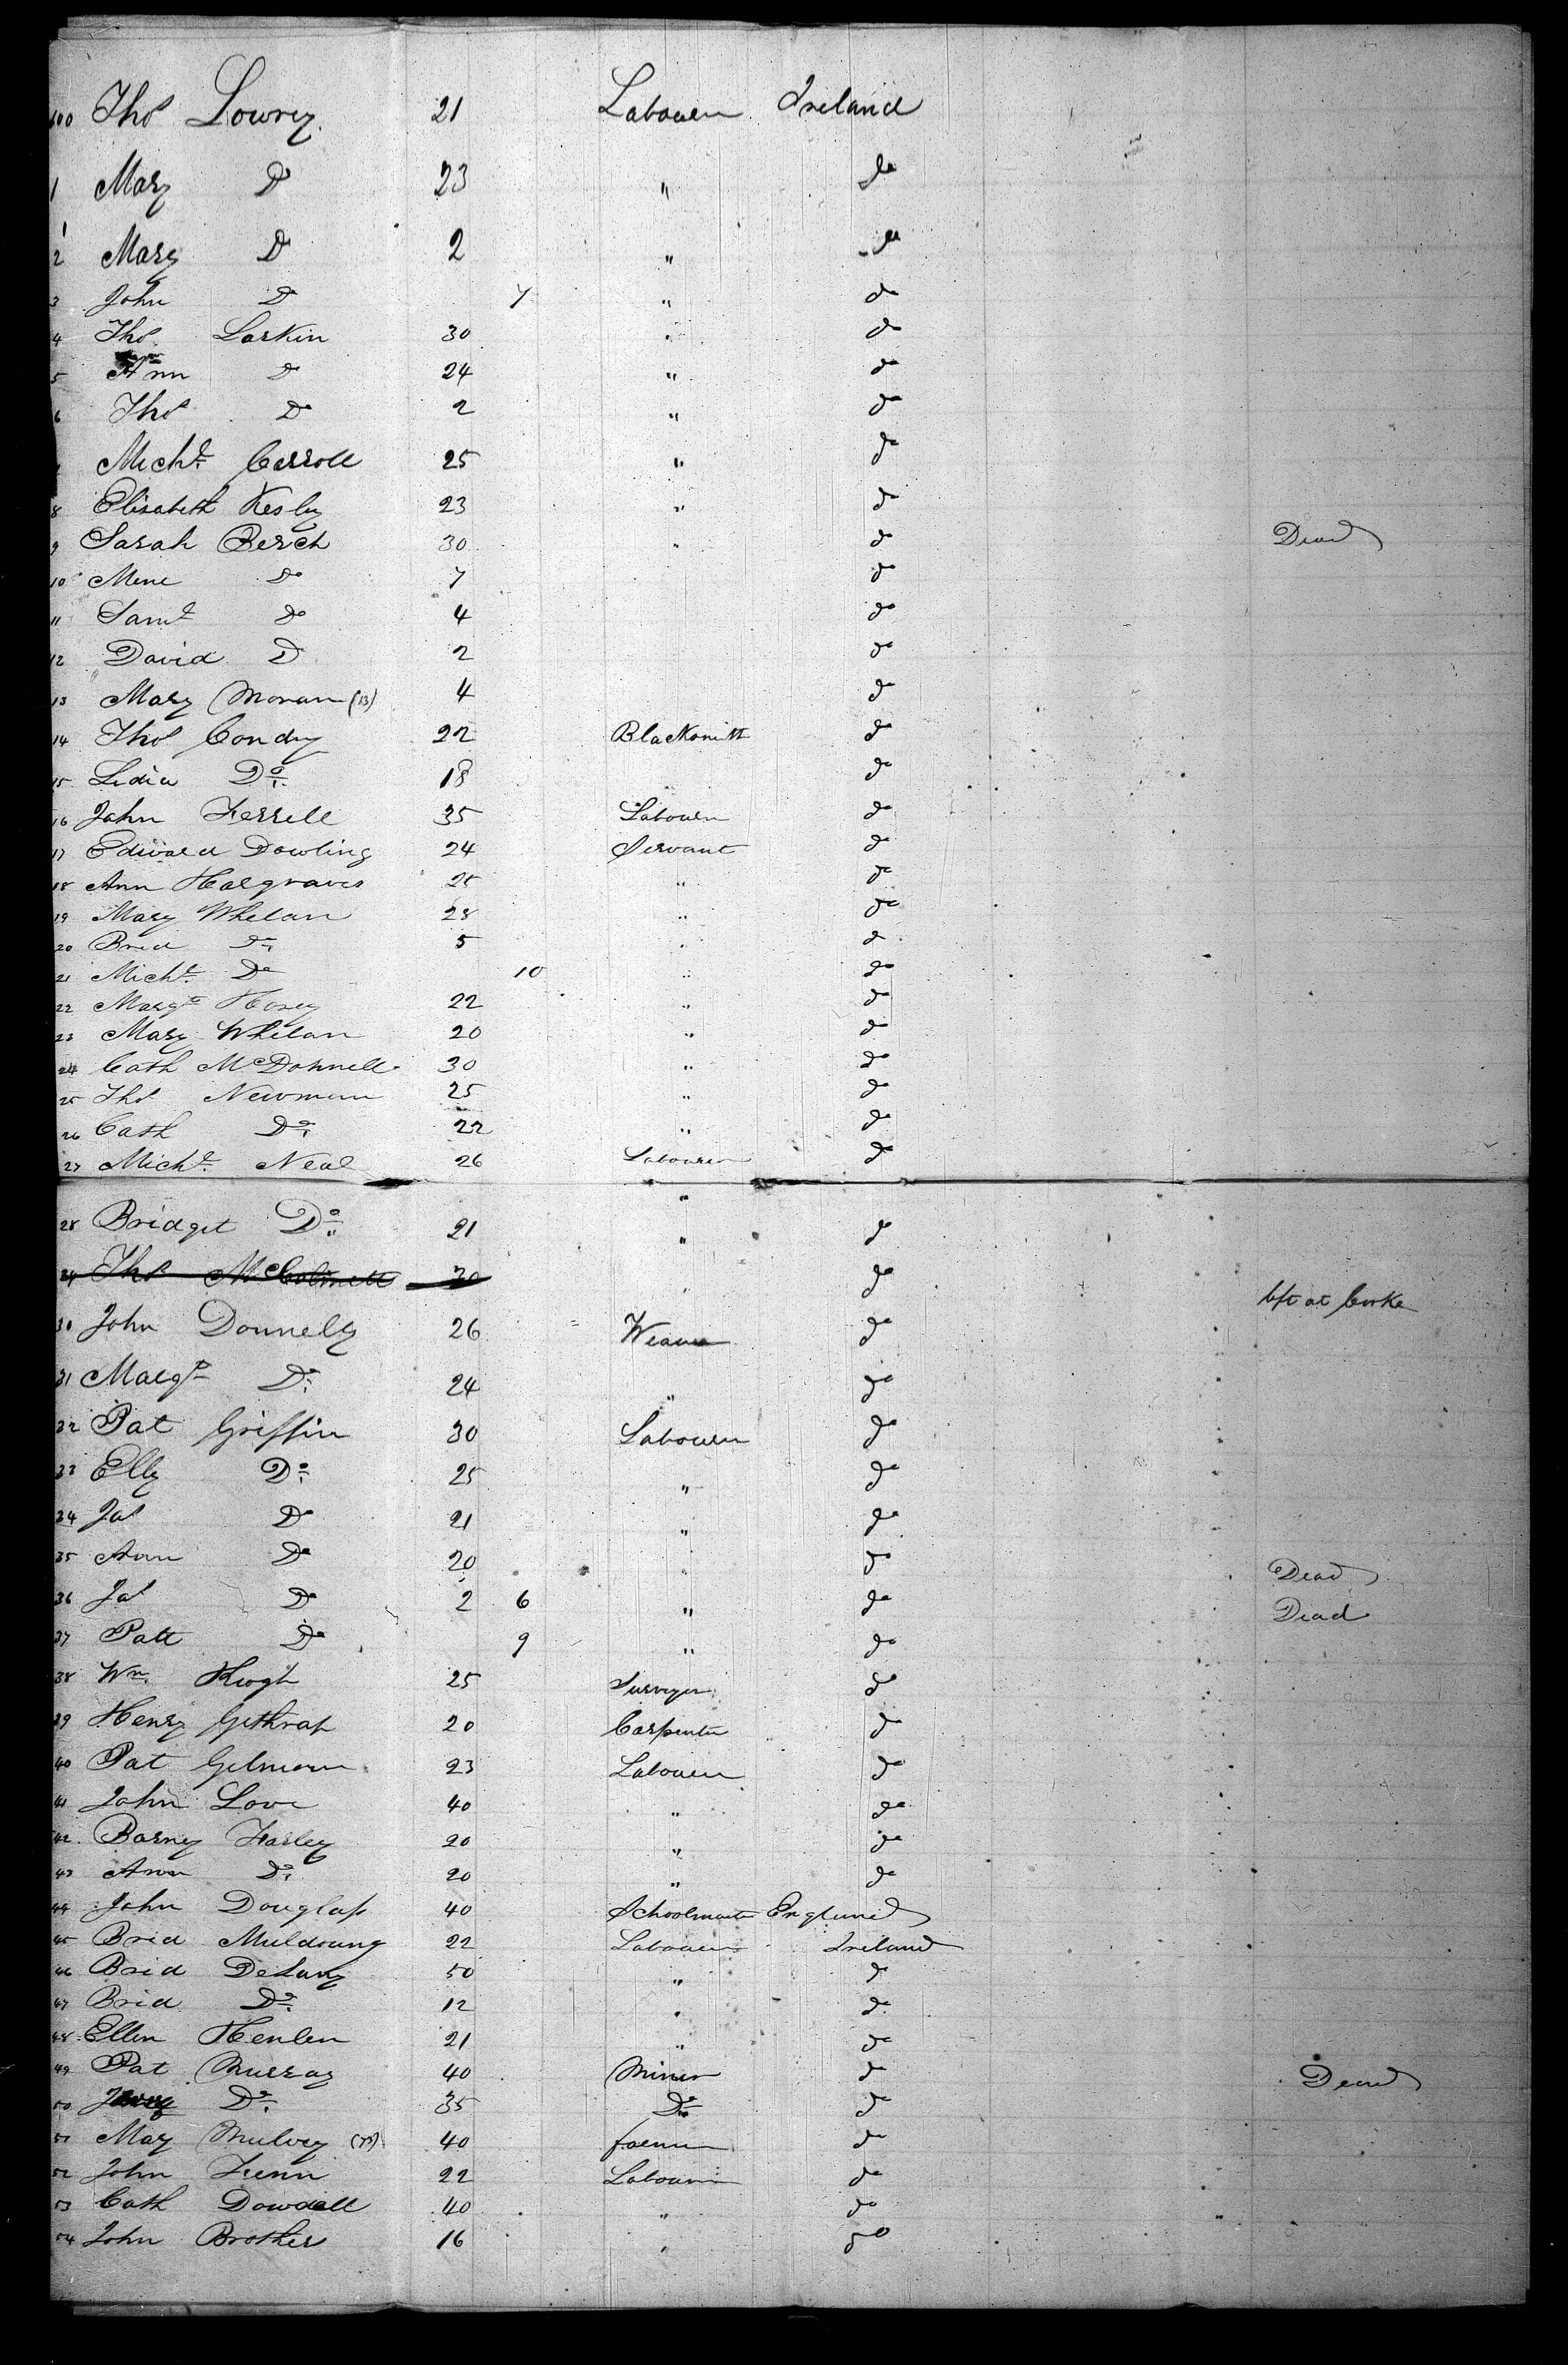 100 Thos Lowrey 21 Labourer Ireland
1 Mary Do 23 " do
2 Mary Do 2 " do
3 John Do 7 " do
4 Thos. Larkin 30 " do
5 Ann Do 24 " do
6 Thos Do 2 " do
Michl. Carroll 25 " do
8 Elisabeth Kesly 23 " do
9 Sarah Berch 30 " do Dead
10 Do 7 do
11 Saml Do 4 do
12 David Do 2 do
13 Mary Moran (13) 4 do
14 Thos Condry 22 Blacksmith do
15 Lidia Do. 18 do
16 John Ferrell 35 Labourer do
17 Edward Dowling 24 Servant do
18 Ann Hargraves 25 " do
19 Mary Whelan 28 " do
20 Brid Do. 5 " do
21 Michl. Do 10 " do
22 Margt 22 " do
23 Mary Whelan 20 " do
24 Cath McDonnell 30 " do
25 Thos Newman 25 " do
26 Cath Do. 22 " do
27 Michl. Neal 26 Labourer do
"
28 Bridget Do. 21 " do
29 Thos 30 " do
left at Corke
30 John Donnelly 26 Weaver do
31 Margt Do. 24 " do
32 Pat Griffin 30 Labourer do
33 Elly Do. 25 " do
34 Jas Do 21 " do
35 Ann Do 20 " do Dead
36 Jas Do 2 6 " do Dead
37 Patt Do 9 " do
38 Wm. Keogh 25 Surveyor do
39 Henry 20 Carpenter do
40 Pat Gilmorn 23 Labourer do
41 John Love 40 " do
42 Barney Farley 20 " do
43 Ann Do. 20 " do
44 John Douglass 40 Schoolmaster England
45 Brid Muldoung 22 Labourer Ireland
46 Brid Delany 50 " do
47 Brid Do. 12 " do
48 Ellen Henlen 21 " do
49 Pat Murray 40 Miner do Dead
50 Do. 35 Do do
51 May Mulvey 40 farmer do
52 John Fenn 22 Labourer do
53 Cath Dowdall 40 " do
54 John Brother 16 " do